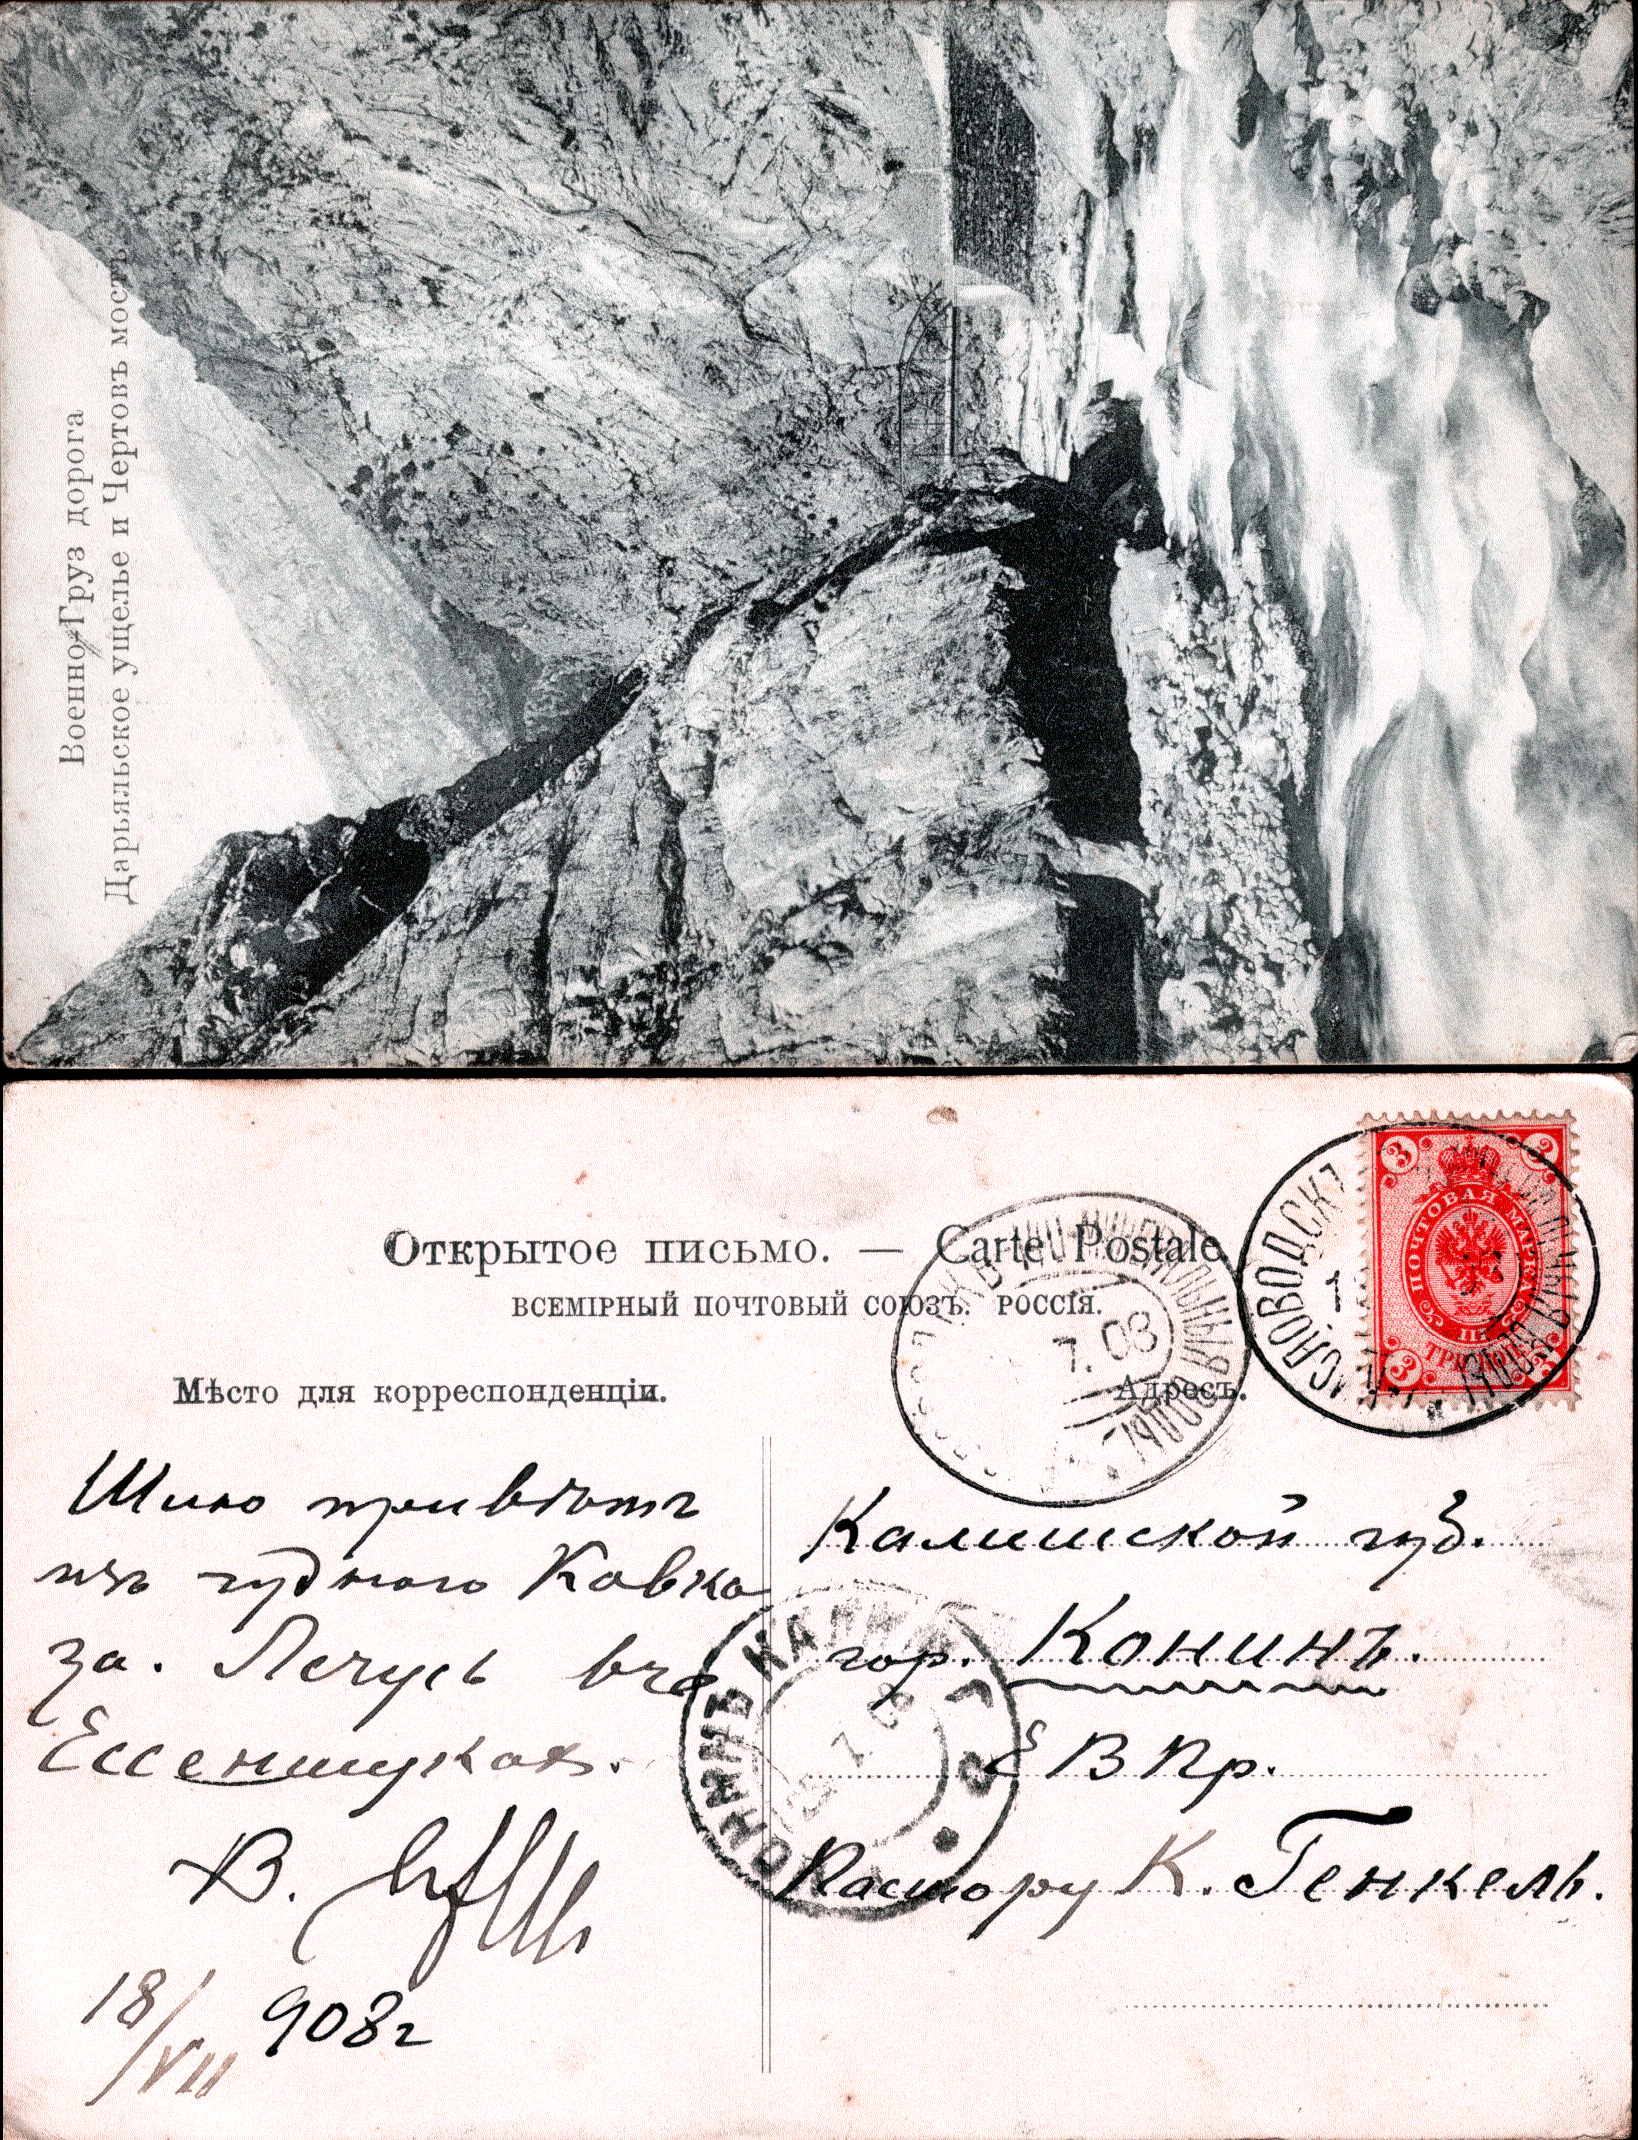 Военно-Груз дорога
Дарьяльское ущелье и Чертовъ мостъ
Открытое письмо. — Carte Postale
ВСЕМІРНЫЙ ПОЧТОВЫЙ СОЮЗЪ. РОССІЯ.
Мѣсто для корреспонденціи.
Адресъ.
Шлю привѣтъ
изъ чуднаго Кавка
за. Лечусь въ
Ессентукахъ.
В.
18/VII 908 г
Калишской губ.
гор. Конинъ.
Е В Пр.
Пастору К. Генкель.
ПОЧТОВАЯ МАРКА
3
3
3
КИСЛОВОДСКЪ
МИНЕРАЛЬНЫЯ ВОДЫ
7.08
КОНИНЪ КАЛИШ
7 08